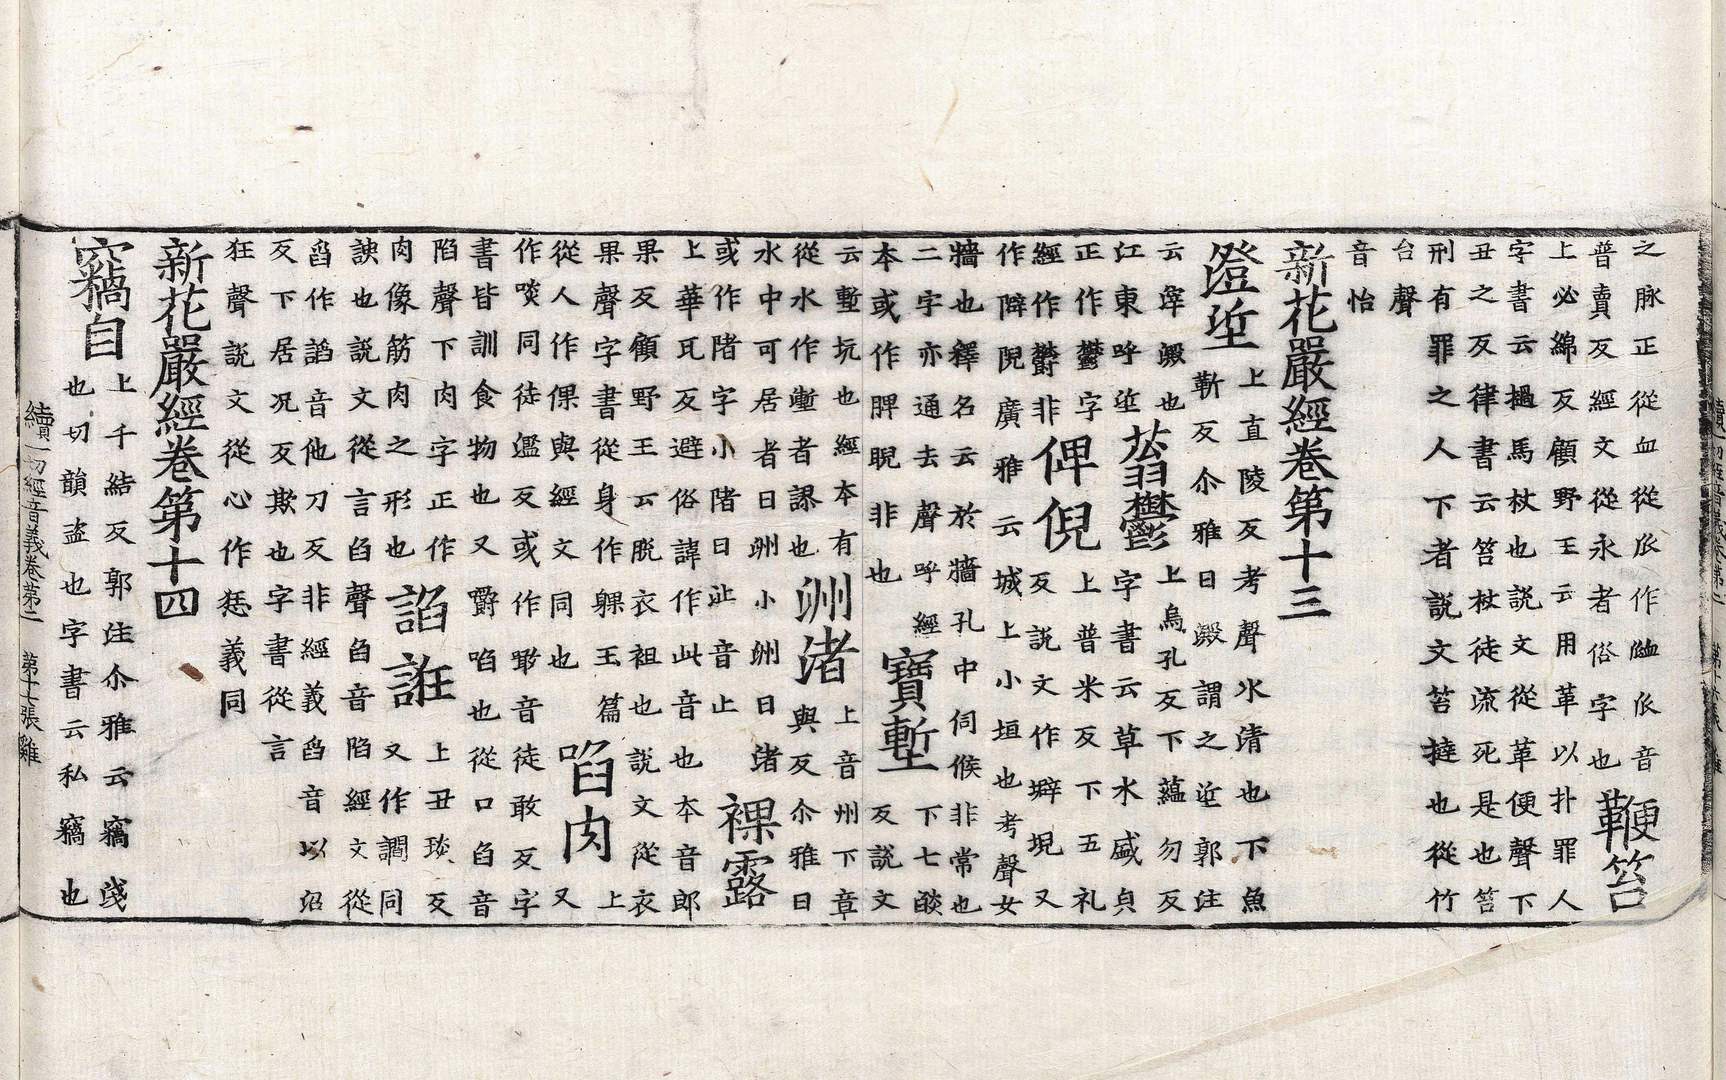 之脉正從血從𠂢作䘑𠂢音
普賣反經文從永者俗字也鞭笞
上必綿反顧野王云用革以扑罪人
字書云撾馬杖也說文從革便聲下
丑之反律書云笞杖徒流死是也笞
刑有罪之人下者說文笞撻也從竹
台聲
音怡
新花嚴經卷第十三
澄垽上直陵反考聲水清也下魚
靳反尒雅曰澱謂之垽郭注
云滓澱也蓊鬱上烏孔反下蘊勿反
江東呼垽字書云草木盛皃
正作鬱字
經作欝非俾倪上普米反下五礼
反說文作壀堄又
作隦隉廣雅云城上小垣也考聲女
牆也釋名云於牆孔中伺候非常也
二字亦通去聲呼經
本或作脾睨非也寶塹下七燄
反說文
云塹坑也經本有
從水作壍者謬也洲渚上音州下章
與反尒雅曰
水中可居者曰洲小洲曰渚
或作陼字小陼曰沚音止裸露
上華瓦反避俗諱作此音也本音郎
果反顧野王云脫衣袒也說文從衣
果聲字書從身作躶玉篇
從人作倮與經文同也啗肉上
又
作啖同徒濫反或作噉音徒敢反字
書皆訓食物也又嚼啗也從口臽音
陷聲下肉字正作
肉像筋肉之形也諂誑上丑琰反
又作讇同
諛也說文從言臽聲臽音陷經文從
舀作謟音他刀反非經義舀音以沼
反下居况反欺也字書從言
狂聲說文從心作𢠼義同
新花嚴經卷第十四
竊自上千結反郭注尒雅云竊淺
也切韻盜也字書云私竊也
續一切經音義卷第二　第十七張　雞